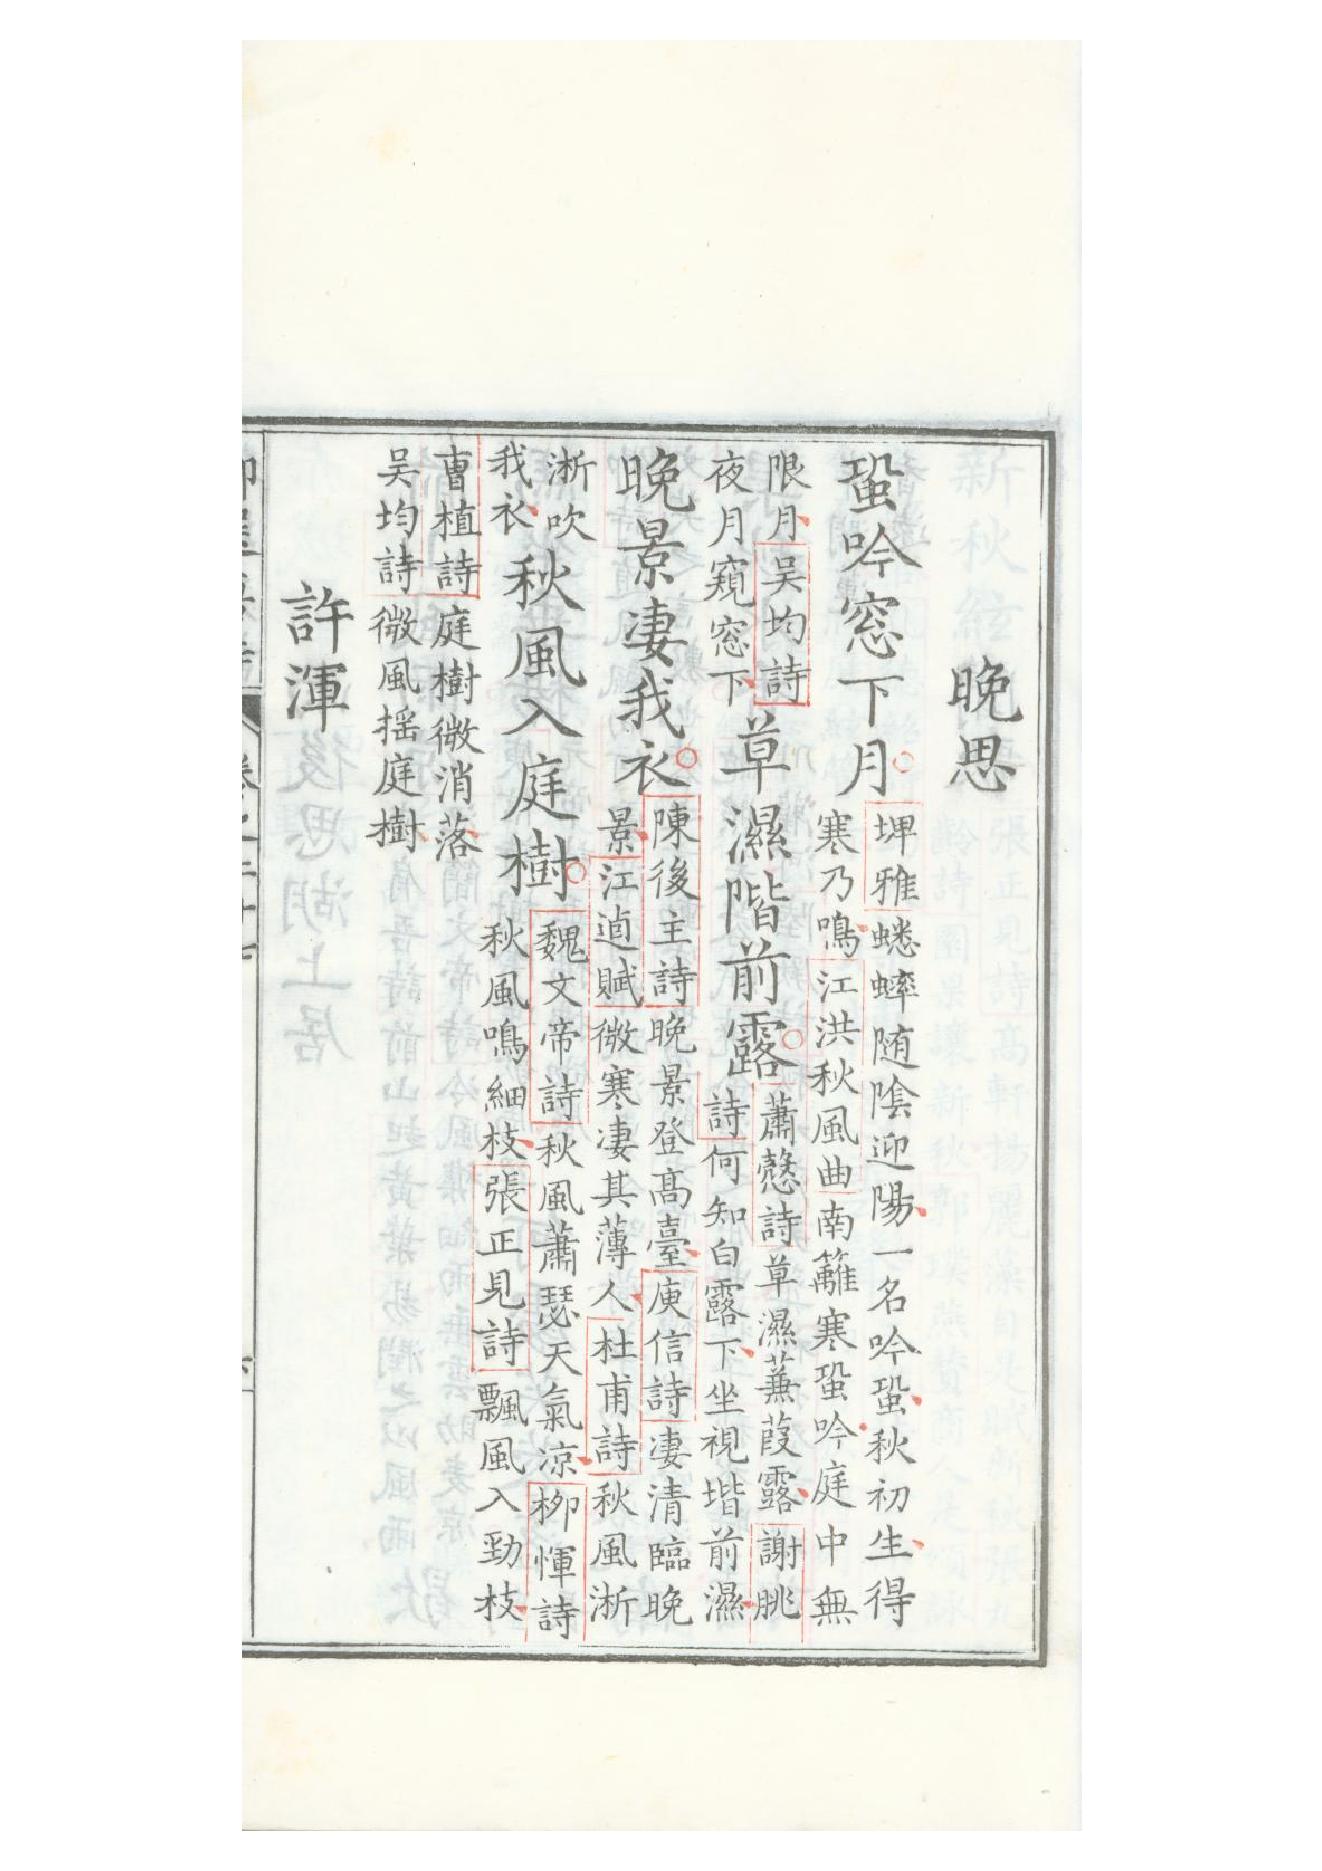 晚思
蛩吟窓下月埤雅蟋蟀随陰迎陽一名吟蛩秋初生得
寒乃鳴江洪秋風曲南籬寒蛩吟庭中無
限月吳均詩
夜月窺窓下草濕階前露蕭慤詩草濕蒹葭露謝朓
詩何知白露下坐視堦前濕
晚景凄我衣陳後主詩晚景登髙臺庾信詩凄清臨晚
景江逌賦微寒凄其薄人杜甫詩秋風淅
淅吹
我衣秋風入庭樹魏文帝詩秋風蕭瑟天氣凉柳惲詩
秋風鳴細枝張正見詩飄風入勁枝
曹植詩庭樹微消落
吴均詩微風揺庭樹
許渾